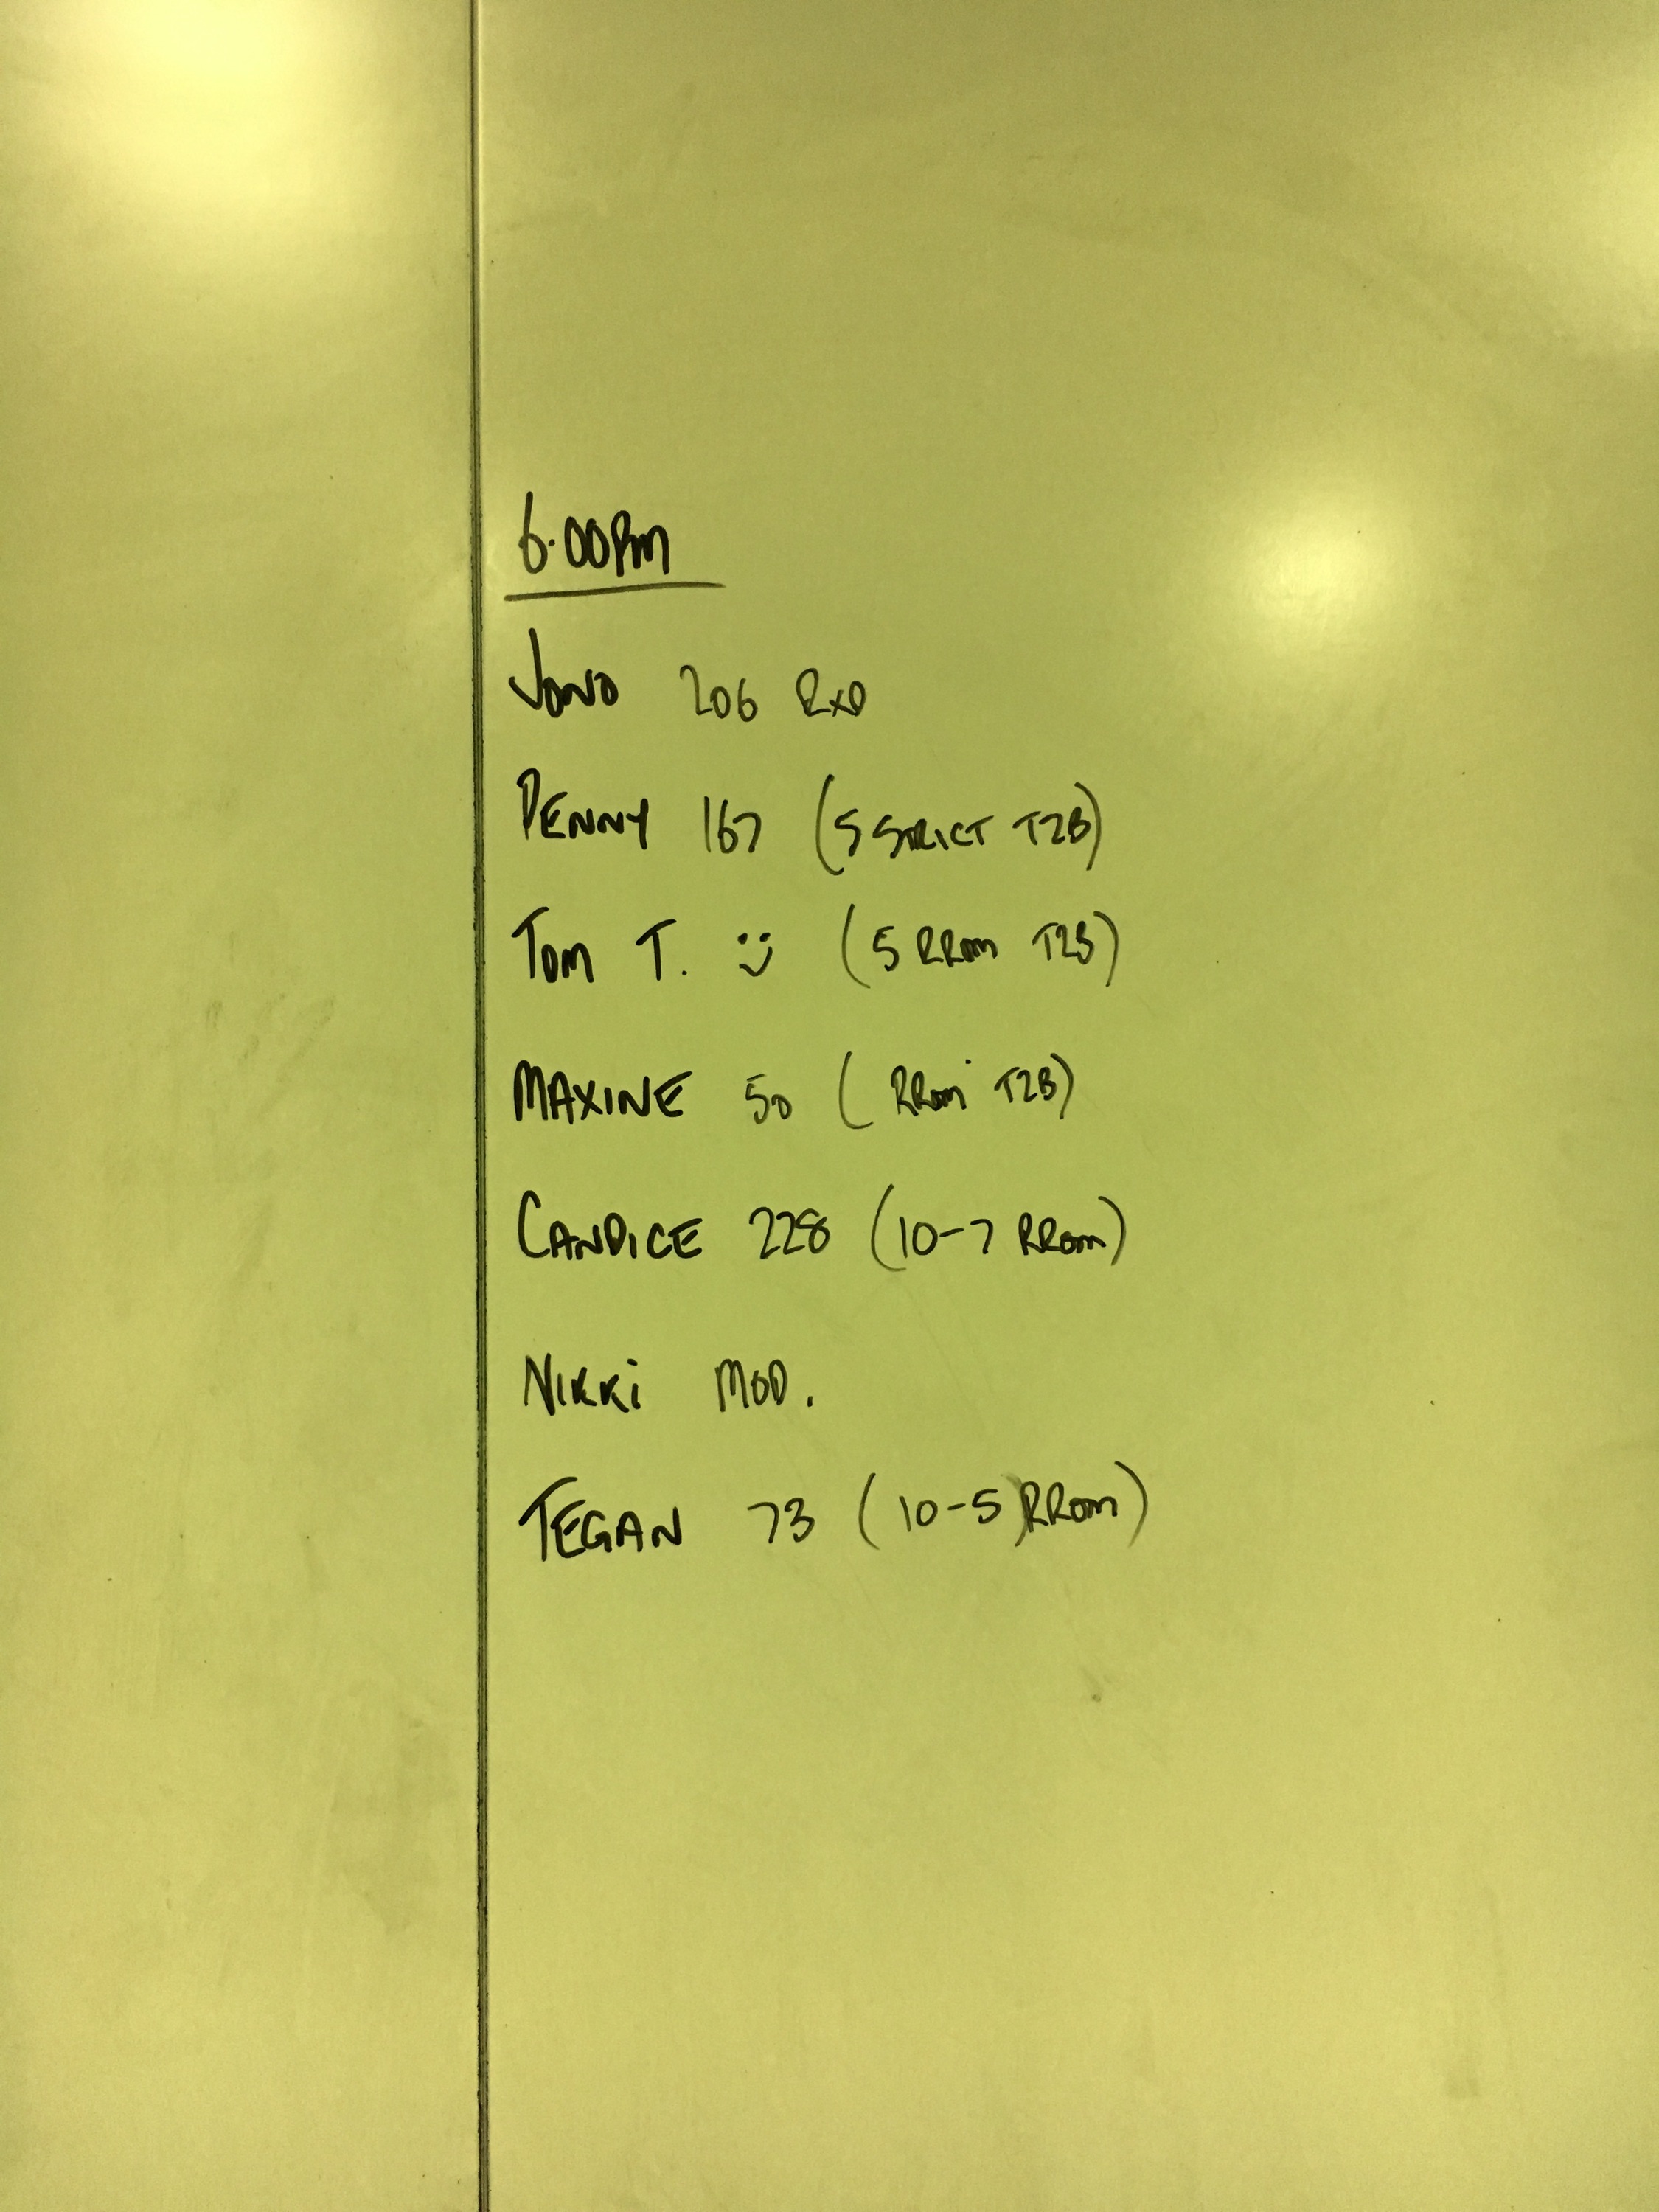 6.00PM
JONO 206 RXD
PENNY 167 (5 STRICT T2B)
TOM T. (5 RROM T2B)
MAXINE 50 (RROM T2B)
CANDICE 228 (10-7 RROM)
NIKKI MOD.
TEGAN 73 (10-5 RROM)